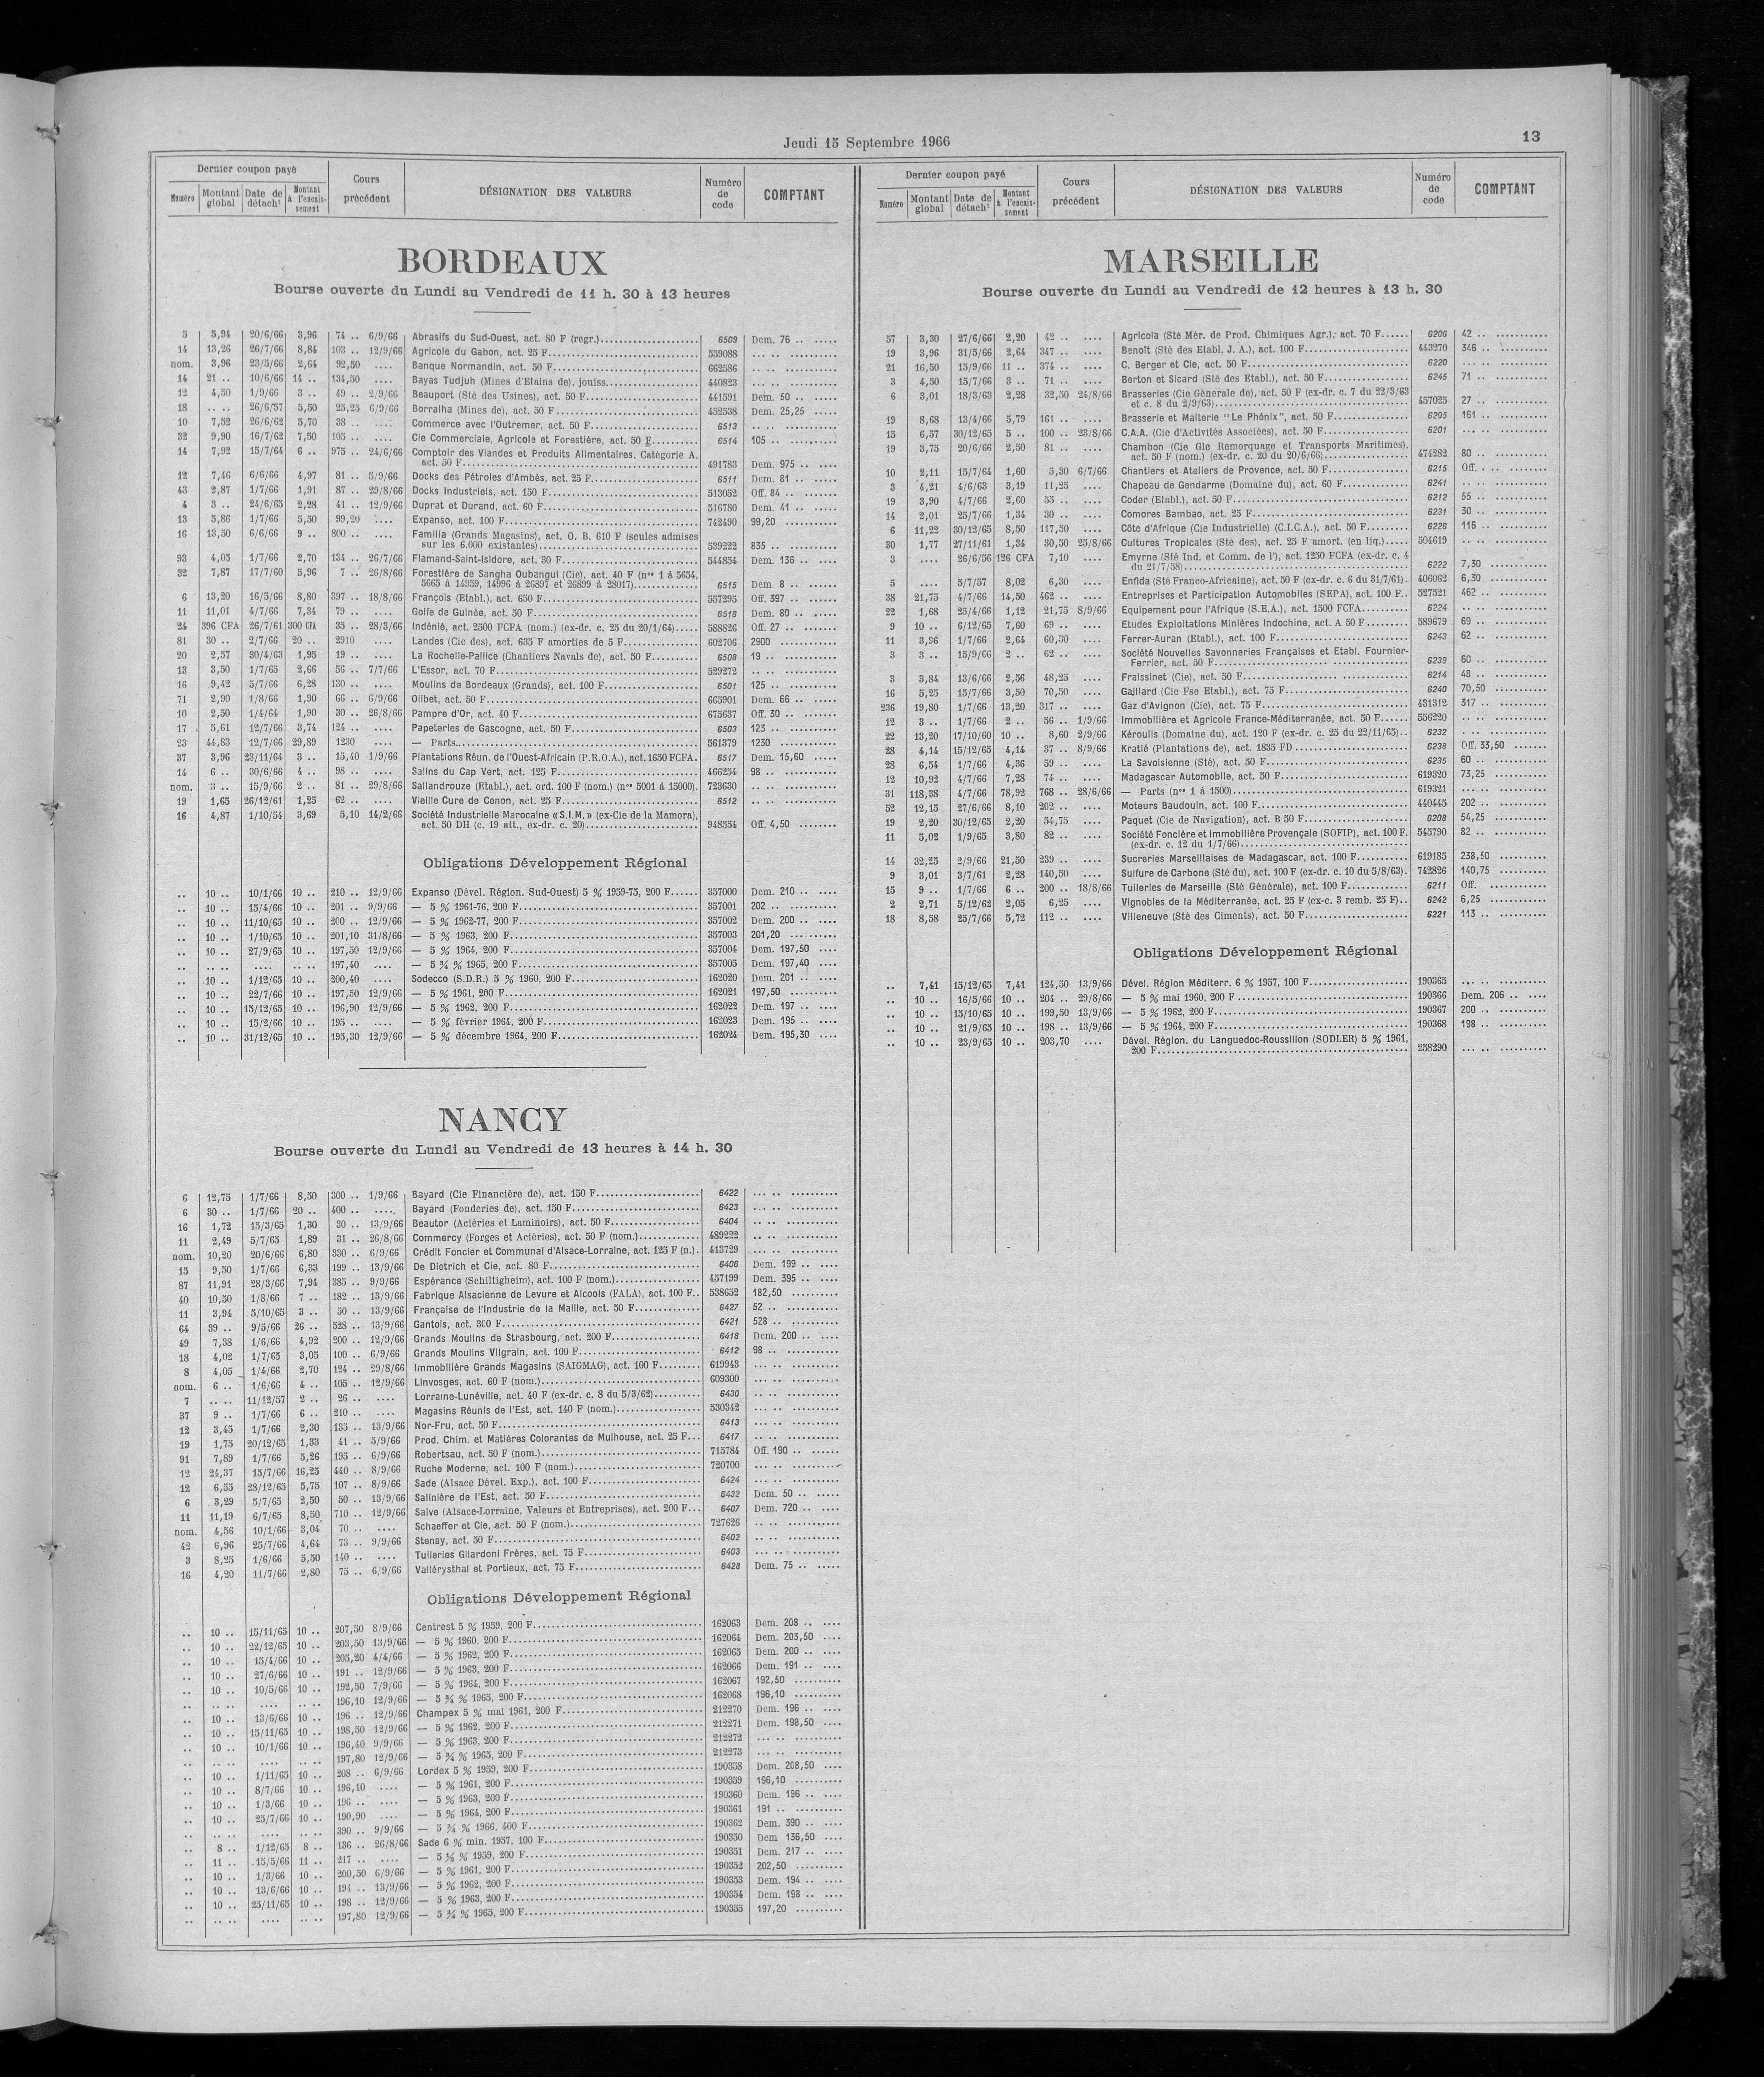 Jeudi 15 Septembre 1966
13
Dernier coupon payé
Numéro Montant global Date de détach¹ Montant à l'encaissement Cours précédent DÉSIGNATION DES VALEURS Numéro de code COMPTANT
BORDEAUX
Bourse ouverte du Lundi au Vendredi de 11 h. 30 à 13 heures
5 5,94 20/6/66 3,96 74 .. 6/9/66 Abrasifs du Sud-Ouest, act. 80 F (regr.) 6509 Dem. 76 ..
14 13,26 26/7/66 8,84 103 .. 12/9/66 Agricole du Gabon, act. 25 F 559088
nom. 3,96 23/5/66 2,64 92,50 Banque Normandin, act. 50 F 662586
14 21 .. 10/6/66 14 .. 134,50 Bayas Tudjuh (Mines d'Etains de), jouiss. 440823
12 4,50 1/9/66 3 .. 49 .. 2/9/66 Beauport (Sté des Usines), act. 50 F 441591 Dem. 50 ..
18 .. .. 26/6/57 5,50 25,25 6/9/66 Borralha (Mines de), act. 50 F 452538 Dem. 25,25
10 7,52 26/6/62 5,70 38 .. Commerce avec l'Outremer, act. 50 F 6513
32 9,90 16/7/62 7,50 105 .. Cie Commerciale, Agricole et Forestière, act. 50 F 6514 105 ..
14 7,92 15/7/64 6 .. 975 .. 24/6/66 Comptoir des Viandes et Produits Alimentaires, Catégorie A,
act. 50 F 491783 Dem. 975 ..
12 7,46 6/6/66 4,97 81 .. 5/9/66 Docks des Pétroles d'Ambès, act. 25 F 6511 Dem. 81 ..
43 2,87 1/7/66 1,91 87 .. 29/8/66 Docks Industriels, act. 150 F 513052 Off. 84 ..
4 3 .. 24/6/65 2,28 41 .. 12/9/66 Duprat et Durand, act. 60 F 516780 Dem. 41 ..
13 5,86 1/7/66 5,50 99,20 Expanso, act. 100 F 742490 99,20
16 13,50 6/6/66 9 .. 800 .. Familia (Grands Magasins), act. O. B. 610 F (seules admises
sur les 6.000 existantes) 539222 835 ..
93 4,05 1/7/66 2,70 134 .. 26/7/66 Flamand-Saint-Isidore, act. 30 F 544854 Dem. 136 ..
32 7,87 17/7/60 5,96 7 .. 26/8/66 Forestière de Sangha Oubangui (Cie), act. 40 F (nos 1 à 5654,
5665 à 14959, 14996 à 26897 et 26899 à 28017) 6515 Dem. 8 ..
6 13,20 16/5/66 8,80 397 .. 18/8/66 François (Etabl.), act. 650 F 557295 Off. 397 ..
11 11,01 4/7/66 7,34 79 .. Golfe de Guinée, act. 50 F 6518 Dem. 80 ..
24 396 CFA 26/7/61 300 CFA 35 .. 28/3/66 Indénié, act. 2500 FCFA (nom.) (ex-dr. c. 25 du 20/1/64) 588826 Off. 27 ..
81 30 .. 2/7/66 20 .. 2910 Landes (Cie des), act. 635 F amorties de 5 F 602706 2900
20 2,57 30/4/63 1,95 19 .. La Rochelle-Pallice (Chantiers Navals de), act. 50 F 6508 19 ..
13 3,50 1/7/65 2,66 56 .. 7/7/66 L'Essor, act. 70 F 529272
16 9,42 5/7/66 6,28 130 .. Moulins de Bordeaux (Grands), act. 100 F 6501 125 ..
71 2,90 1/8/66 1,90 66 .. 6/9/66 Olibet, act. 50 F 665901 Dem. 66 ..
10 2,50 1/4/64 1,90 30 .. 26/8/66 Pampre d'Or, act. 40 F 675637 Off. 30 ..
17 5,61 12/7/66 3,74 124 .. Papeteries de Gascogne, act. 50 F 6503 123 ..
23 44,83 12/7/66 29,89 1230 — Parts 561379 1230
37 3,96 23/11/64 3 .. 15,40 1/9/66 Plantations Réun. de l'Ouest-Africain (P.R.O.A.), act. 1650 FCFA. 6517 Dem. 15,60
14 6 .. 30/6/66 4 .. 98 .. Salins du Cap Vert, act. 125 F 466254 98 ..
nom. 3 .. 15/9/66 2 .. 81 .. 29/8/66 Sallandrouze (Etabl.), act. ord. 100 F (nom.) (nos 5001 à 15000). 723630
19 1,65 26/12/61 1,25 62 .. Vieille Cure de Cenon, act. 25 F 6512
16 4,87 1/10/54 3,69 5,10 14/2/66 Société Industrielle Marocaine «S.I.M.» (ex-Cie de la Mamora),
act. 50 DH (c. 19 att., ex-dr. c. 20) 948554 Off. 4,50
Obligations Développement Régional
.. 10 .. 10/1/66 10 .. 210 .. 12/9/66 Expanso (Dével. Région. Sud-Ouest) 5 % 1959-75, 200 F 357000 Dem. 210 ..
.. 10 .. 15/4/66 10 .. 201 .. 9/9/66 — 5 % 1961-76, 200 F 357001 202 ..
.. 10 .. 11/10/65 10 .. 200 .. 12/9/66 — 5 % 1962-77, 200 F 357002 Dem. 200 ..
.. 10 .. 1/10/65 10 .. 201,10 31/8/66 — 5 % 1963, 200 F 357003 201,20
.. 10 .. 27/9/65 10 .. 197,50 12/9/66 — 5 % 1964, 200 F 357004 Dem. 197,50
.. .. .. .... .. .. 197,40 — 5 ¾ % 1965, 200 F 357005 Dem. 197,40
.. 10 .. 1/12/65 10 .. 200,40 Sodecco (S.D.R.) 5 % 1960, 200 F 162020 Dem. 201 ..
.. 10 .. 22/7/66 10 .. 197,50 12/9/66 — 5 % 1961, 200 F 162021 197,50
.. 10 .. 15/12/65 10 .. 196,90 12/9/66 — 5 % 1962, 200 F 162022 Dem. 197 ..
.. 10 .. 15/2/66 10 .. 195 .. — 5 % février 1964, 200 F 162023 Dem. 195 ..
.. 10 .. 31/12/65 10 .. 195,30 12/9/66 — 5 % décembre 1964, 200 F 162024 Dem. 195,30
NANCY
Bourse ouverte du Lundi au Vendredi de 13 heures à 14 h. 30
6 12,75 1/7/66 8,50 300 .. 1/9/66 Bayard (Cie Financière de), act. 150 F 6422
6 30 .. 1/7/66 20 .. 400 .. Bayard (Fonderies de), act. 150 F 6423
16 1,72 15/3/65 1,30 30 .. 13/9/66 Beautor (Aciéries et Laminoirs), act. 50 F 6404
11 2,49 5/7/65 1,89 31 .. 26/8/66 Commercy (Forges et Aciéries), act. 50 F (nom.) 489222
nom. 10,20 20/6/66 6,80 330 .. 6/9/66 Crédit Foncier et Communal d'Alsace-Lorraine, act. 125 F (n.). 413729
15 9,50 1/7/66 6,33 199 .. 13/9/66 De Dietrich et Cie, act. 80 F 6406 Dem. 199 ..
87 11,91 28/3/66 7,94 385 .. 9/9/66 Espérance (Schiltigheim), act. 100 F (nom.) 457199 Dem. 395 ..
40 10,50 1/8/66 7 .. 182 .. 13/9/66 Fabrique Alsacienne de Levure et Alcools (FALA), act. 100 F.. 538652 182,50
11 3,94 5/10/65 3 .. 50 .. 13/9/66 Française de l'Industrie de la Maille, act. 50 F 6427 52 ..
64 39 .. 9/5/66 26 .. 528 .. 13/9/66 Gantois, act. 300 F 6421 528 ..
49 7,38 1/6/66 4,92 200 .. 12/9/66 Grands Moulins de Strasbourg, act. 200 F 6418 Dem. 200 ..
18 4,02 1/7/65 3,05 100 .. 6/9/66 Grands Moulins Vilgrain, act. 100 F 6412 98 ..
8 4,05 1/4/66 2,70 124 .. 29/8/66 Immobilière Grands Magasins (SAIGMAG), act. 100 F 619943
nom. 6 .. 1/6/66 4 .. 105 .. 12/9/66 Linvosges, act. 60 F (nom.) 609300
7 .. .. 11/12/57 2 .. 26 .. Lorraine-Lunéville, act. 40 F (ex-dr. c. 8 du 5/3/62) 6430
37 9 .. 1/7/66 6 .. 210 .. Magasins Réunis de l'Est, act. 140 F (nom.) 530342
12 3,45 1/7/66 2,30 135 .. 13/9/66 Nor-Fru, act. 50 F 6413
19 1,75 20/12/65 1,33 41 .. 5/9/66 Prod. Chim. et Matières Colorantes de Mulhouse, act. 25 F 6417
91 7,89 1/7/66 5,26 195 .. 6/9/66 Robertsau, act. 50 F (nom.) 715784 Off. 190 ..
12 24,37 15/7/66 16,25 440 .. 8/9/66 Ruche Moderne, act. 100 F (nom.) 720700
12 6,55 28/12/65 5,75 107 .. 8/9/66 Sade (Alsace Dével. Exp.), act. 100 F 6424
6 3,29 5/7/65 2,50 50 .. 13/9/66 Salinière de l'Est, act. 50 F 6432 Dem. 50 ..
11 11,19 6/7/65 8,50 710 .. 12/9/66 Salve (Alsace-Lorraine, Valeurs et Entreprises), act. 200 F 6407 Dem. 720 ..
nom. 4,56 10/1/66 3,04 70 .. Schaeffer et Cie, act. 50 F (nom.) 727626
42 6,96 25/7/66 4,64 73 .. 9/9/66 Stenay, act. 50 F 6402
3 8,25 1/6/66 5,50 140 .. Tuileries Gilardoni Frères, act. 75 F 6403
16 4,20 11/7/66 2,80 75 .. 6/9/66 Vallérysthal et Portieux, act. 75 F 6428 Dem. 75 ..
Obligations Développement Régional
.. 10 .. 15/11/65 10 .. 207,50 8/9/66 Centrest 5 % 1959, 200 F 162063 Dem. 208 ..
.. 10 .. 22/12/65 10 .. 203,50 13/9/66 — 5 % 1960, 200 F 162064 Dem. 203,50
.. 10 .. 15/4/66 10 .. 205,20 4/4/66 — 5 % 1962, 200 F 162065 Dem. 200 ..
.. 10 .. 27/6/66 10 .. 191 .. 12/9/66 — 5 % 1963, 200 F 162066 Dem. 191 ..
.. 10 .. 10/5/66 10 .. 192,50 7/9/66 — 5 % 1964, 200 F 162067 192,50
.. .. .. .... .. .. 196,10 12/9/66 — 5 ¾ % 1965, 200 F 162068 196,10
.. 10 .. 13/6/66 10 .. 196 .. 12/9/66 Champex 5 % mai 1961, 200 F 212270 Dem. 196 ..
.. 10 .. 15/11/65 10 .. 198,50 12/9/66 — 5 % 1962, 200 F 212271 Dem. 198,50
.. 10 .. 10/1/66 10 .. 196,40 9/9/66 — 5 % 1963, 200 F 212272
.. .. .. .... .. .. 197,80 12/9/66 — 5 ¾ % 1965, 200 F 212273
.. 10 .. 1/11/65 10 .. 208 .. 6/9/66 Lordex 5 % 1959, 200 F 190358 Dem. 208,50
.. 10 .. 8/7/66 10 .. 196,10 — 5 % 1961, 200 F 190359 196,10
.. 10 .. 1/3/66 10 .. 196 .. — 5 % 1963, 200 F 190360 Dem. 196 ..
.. 10 .. 25/7/66 10 .. 190,90 — 5 % 1964, 200 F 190361 191 ..
.. .. .. .... .. .. 390 .. 9/9/66 — 5 ¾ % 1966, 400 F 190362 Dem. 390 ..
.. 8 .. 1/12/65 8 .. 136 .. 26/8/66 Sade 6 % min. 1957, 100 F 190350 Dem 136,50
.. 11 .. 15/5/66 11 .. 217 .. — 5 ½ % 1959, 200 F 190351 Dem. 217 ..
.. 10 .. 1/3/66 10 .. 200,50 6/9/66 — 5 % 1961, 200 F 190352 202,50
.. 10 .. 13/6/66 10 .. 194 .. 13/9/66 — 5 % 1962, 200 F 190353 Dem. 194 ..
.. 10 .. 25/11/65 10 .. 198 .. 12/9/66 — 5 % 1963, 200 F 190354 Dem. 198 ..
.. .. .. .... .. .. 197,80 12/9/66 — 5 ¾ % 1965, 200 F 190355 197,20
Dernier coupon payé
Numéro Montant global Date de détach¹ Montant à l'encaissement Cours précédent DÉSIGNATION DES VALEURS Numéro de code COMPTANT
MARSEILLE
Bourse ouverte du Lundi au Vendredi de 12 heures à 13 h. 30
57 3,30 27/6/66 2,20 42 .. Agricola (Sté Mér. de Prod. Chimiques Agr.), act. 70 F 6206 42 ..
19 3,96 31/5/66 2,64 347 .. Benoît (Sté des Etabl. J. A.), act. 100 F 443270 346 ..
21 16,50 15/9/66 11 .. 374 .. C. Berger et Cie, act. 50 F 6220
3 4,50 15/7/66 3 .. 71 .. Berton et Sicard (Sté des Etabl.), act. 50 F 6245 71 ..
6 3,01 18/3/63 2,28 32,50 24/8/66 Brasseries (Cie Générale de), act. 50 F (ex-dr. c. 7 du 22/3/63
et c. 8 du 2/9/63) 457025 27 ..
19 8,68 13/4/66 5,79 161 .. Brasserie et Malterie "Le Phénix", act. 50 F 6205 161 ..
15 6,57 30/12/65 5 .. 100 .. 23/8/66 C.A.A. (Cie d'Activités Associées), act. 50 F 6201
19 3,75 20/6/66 2,50 81 .. Chambon (Cie Gle Remorquage et Transports Maritimes),
act. 50 F (nom.) (ex-dr. c. 20 du 20/6/66) 474282 80 ..
10 2,11 15/7/64 1,60 5,30 6/7/66 Chantiers et Ateliers de Provence, act. 50 F 6215 Off.
3 4,21 4/6/63 3,19 11,25 Chapeau de Gendarme (Domaine du), act. 60 F 6241
19 3,90 4/7/66 2,60 55 .. Coder (Etabl.), act. 50 F 6212 55 ..
14 2,01 25/7/66 1,34 30 .. Comores Bambao, act. 25 F 6231 30 ..
6 11,22 30/12/65 8,50 117,50 Côte d'Afrique (Cie Industrielle) (C.I.C.A.), act. 50 F 6226 116 ..
30 1,77 27/11/61 1,34 30,50 25/8/66 Cultures Tropicales (Sté des), act. 25 F amort. (en liq.) 504619
3 .... 26/6/56 126 CFA 7,10 Emyrne (Sté Ind. et Comm. de l'), act. 1250 FCFA (ex-dr. c. 4
du 21/7/58) 6222 7,30
5 .... 5/7/57 8,02 6,30 Enfida (Sté Franco-Africaine), act. 50 F (ex-dr. c. 6 du 31/7/61). 406062 6,30
38 21,75 4/7/66 14,50 462 .. Entreprises et Participation Automobiles (SEPA), act. 100 F.. 527521 462 ..
22 1,68 25/4/66 1,12 21,75 8/9/66 Equipement pour l'Afrique (S.E.A.), act. 1500 FCFA 6224
9 10 .. 6/12/65 7,60 69 .. Etudes Exploitations Minières Indochine, act. A 50 F 589679 69 ..
11 3,96 1/7/66 2,64 60,50 Ferrer-Auran (Etabl.), act. 100 F 6243 62 ..
3 3 .. 15/9/66 2 .. 62 .. Société Nouvelles Savonneries Françaises et Etabl. Fournier-
Ferrier, act. 50 F 6239 60 ..
3 3,84 13/6/66 2,56 48,25 Fraissinet (Cie), act. 50 F 6214 48 ..
16 5,25 15/7/66 3,50 70,50 Gaillard (Cie Fse Etabl.), act. 75 F 6240 70,50
236 19,80 1/7/66 13,20 317 .. Gaz d'Avignon (Cie), act. 75 F 431312 317 ..
12 3 .. 1/7/66 2 .. 56 .. 1/9/66 Immobilière et Agricole France-Méditerranée, act. 50 F 556220
22 13,20 17/10/60 10 .. 8,60 2/9/66 Kéroulis (Domaine du), act. 120 F (ex-dr. c. 23 du 22/11/65).. 6232
28 4,14 15/12/65 4,14 37 .. 8/9/66 Kratié (Plantations de), act. 1835 FD 6238 Off. 33,50
28 6,54 1/7/66 4,36 59 .. La Savoisienne (Sté), act. 50 F 6235 60 ..
12 10,92 4/7/66 7,28 74 .. Madagascar Automobile, act. 50 F 619320 73,25
31 118,38 4/7/66 78,92 768 .. 28/6/66 — Parts (nos 1 à 1500) 619321
52 12,15 27/6/66 8,10 202 .. Moteurs Baudouin, act. 100 F 440445 202 ..
19 2,20 30/12/65 2,20 54,75 Paquet (Cie de Navigation), act. B 50 F 6208 54,25
11 5,02 1/9/65 3,80 82 .. Société Foncière et Immobilière Provençale (SOFIP), act. 100 F.
(ex-dr. c. 12 du 1/7/66) 545790 82 ..
14 32,25 2/9/66 21,50 239 .. Sucreries Marseillaises de Madagascar, act. 100 F 619185 238,50
9 3,01 3/7/61 2,28 140,50 Sulfure de Carbone (Sté du), act. 100 F (ex-dr. c. 10 du 5/8/63). 742826 140,75
15 9 .. 1/7/66 6 .. 200 .. 18/8/66 Tuileries de Marseille (Sté Générale), act. 100 F 6211 Off.
2 2,71 5/12/62 2,05 6,25 Vignobles de la Méditerranée, act. 25 F (ex-c. 3 remb. 25 F).. 6242 6,25
18 8,58 25/7/66 5,72 112 .. Villeneuve (Sté des Ciments), act. 50 F 6221 113 ..
Obligations Développement Régional
.. 7,41 15/12/65 7,41 124,50 13/9/66 Dével. Région Méditerr. 6 % 1957, 100 F 190365
.. 10 .. 16/5/66 10 .. 204 .. 29/8/66 — 5 % mai 1960, 200 F 190366 Dem. 206 ..
.. 10 .. 15/10/65 10 .. 199,50 13/9/66 — 5 % 1962, 200 F 190367 200 ..
.. 10 .. 21/9/65 10 .. 198 .. 13/9/66 — 5 % 1964, 200 F 190368 198 ..
.. 10 .. 23/9/65 10 .. 203,70 Dével. Région. du Languedoc-Roussillon (SODLER) 5 % 1961,
200 F 258290